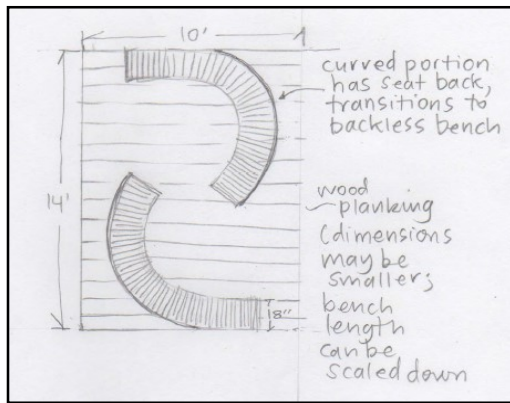 10'
curved portion
has seat back,
transitions to
backless bench
14'
wood
planking
(dimensions
may be
smaller;
bench
length
can be
scaled down
18"